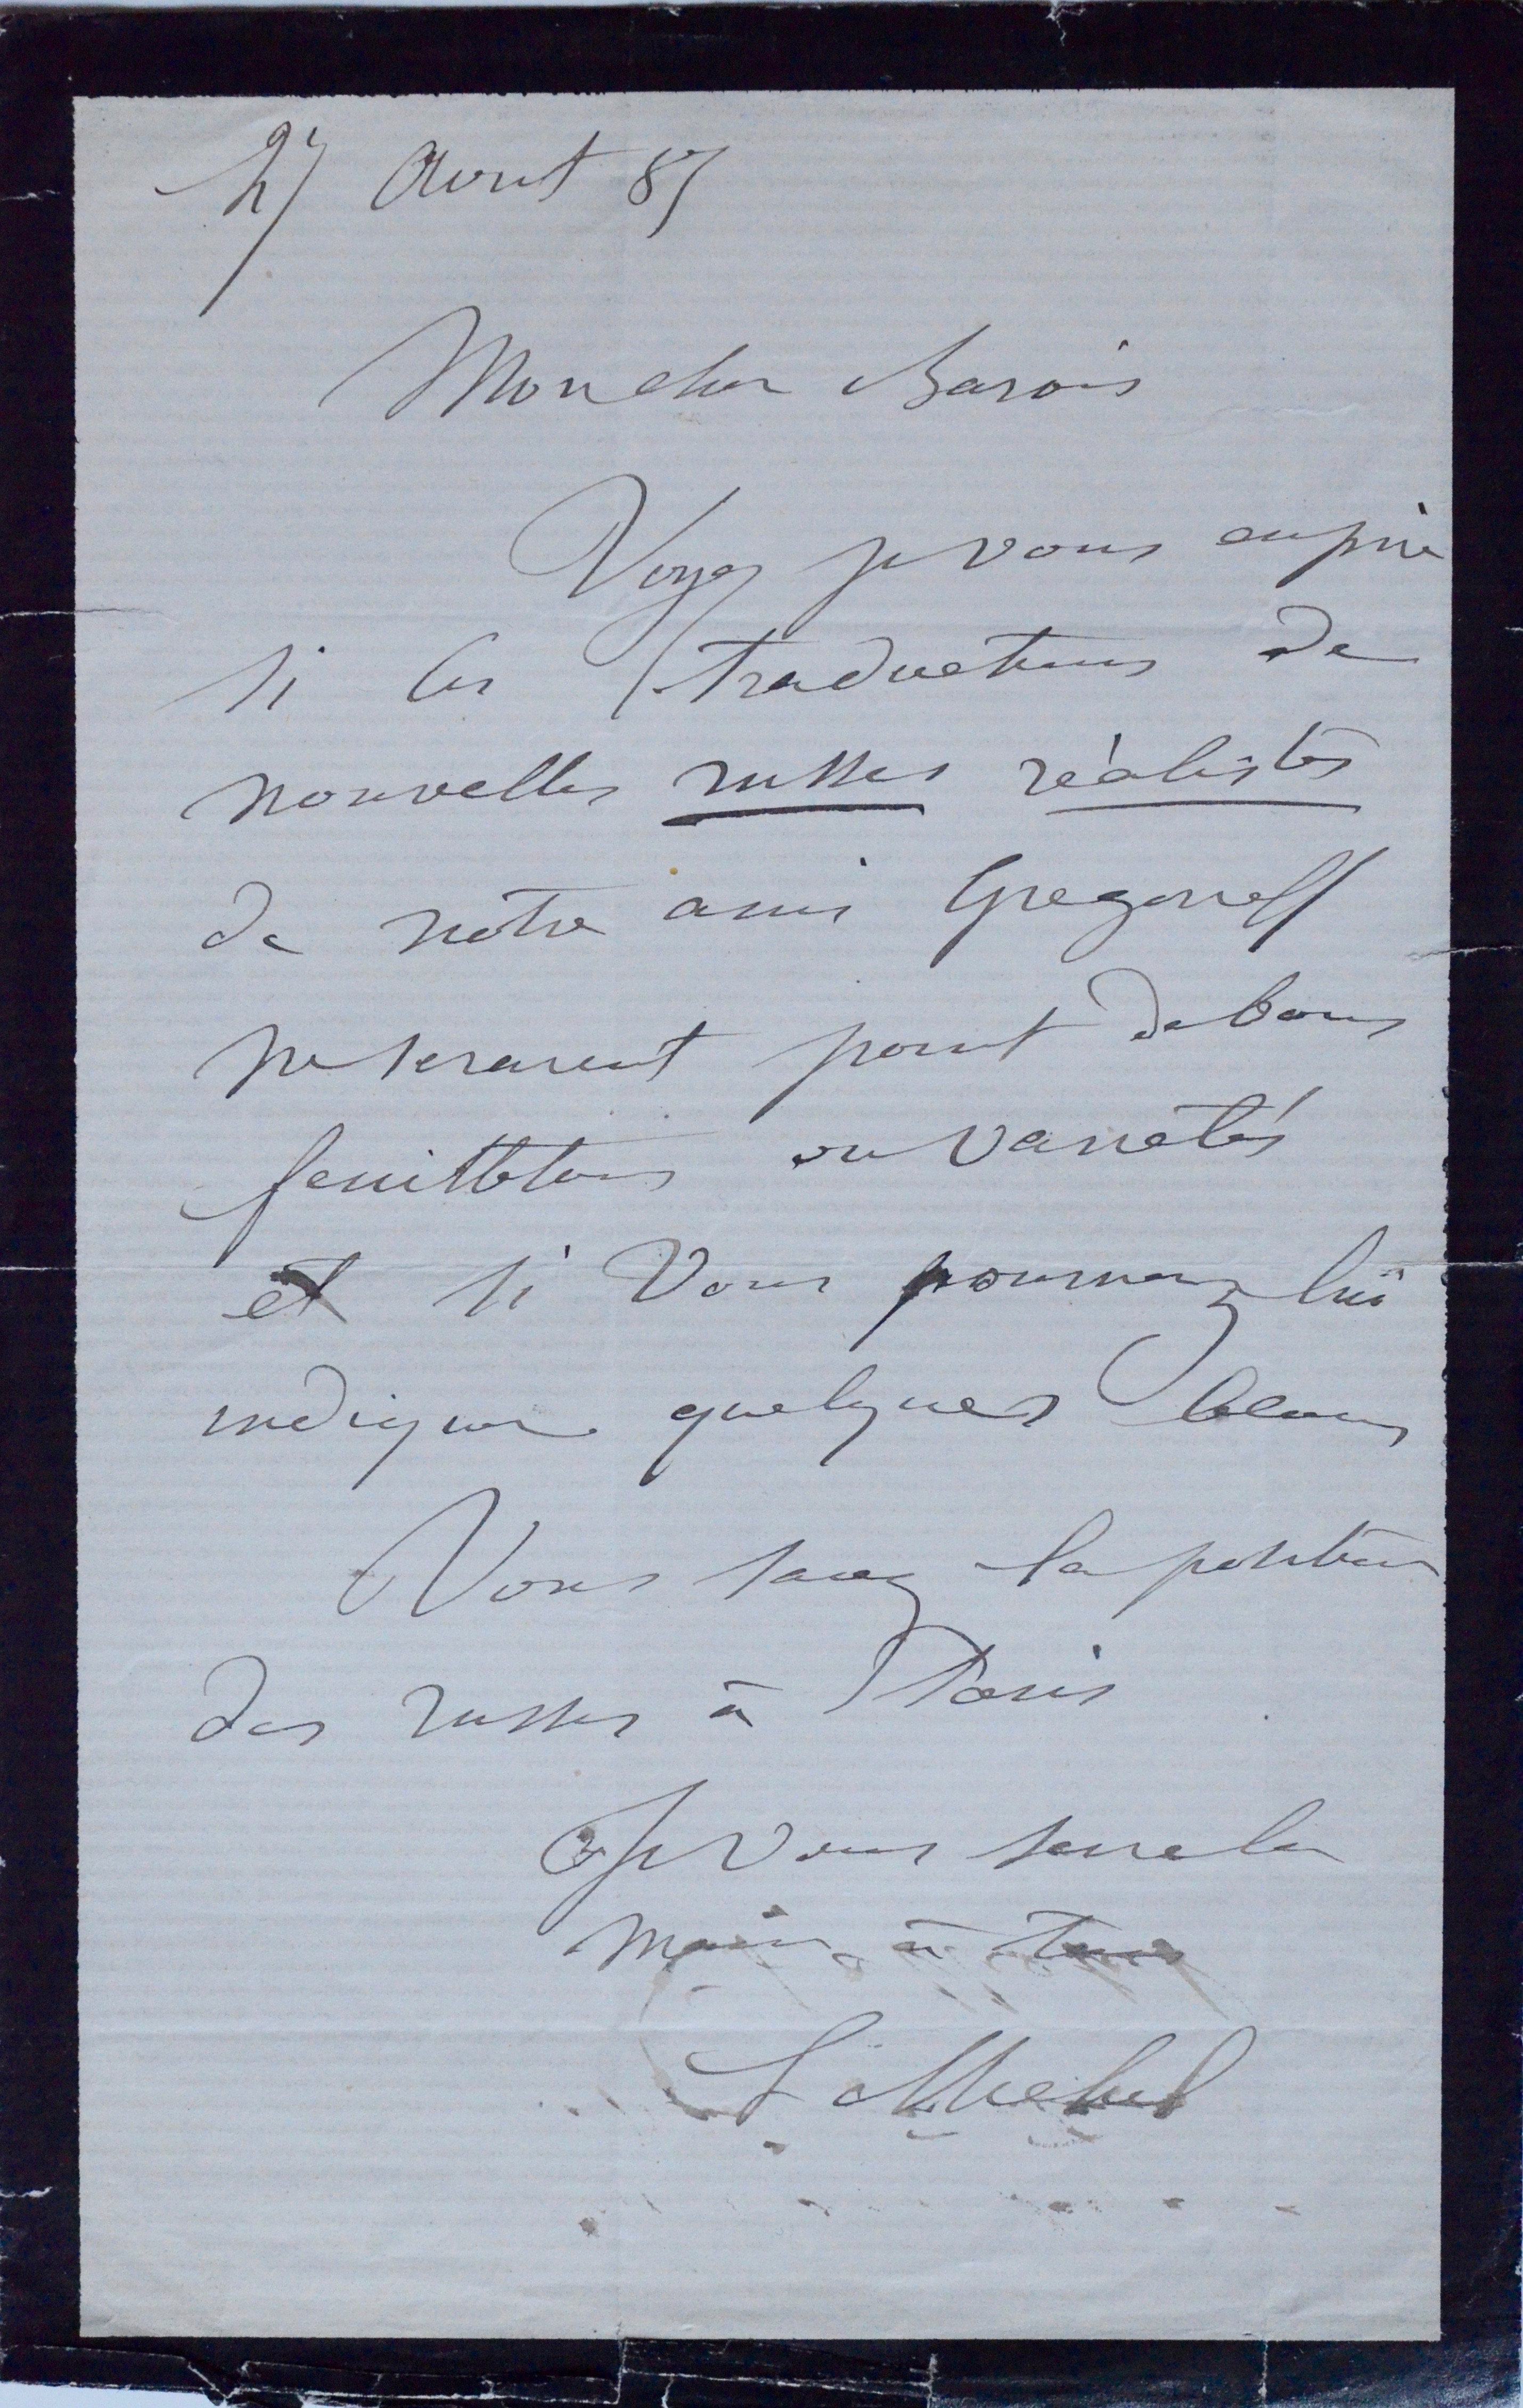 27 Aout 87
Mon cher Barois
Voyez je vous en prie
si les traductions de
nouvelles russes réalistes
de notre ami Gregoreff
ne seraient point de bons
feuilletons ou variétés
et si vous pourriez lui
indiquer quelques
Vous savez la position
des russes à Paris
Je vous serre la
main à tous
L Michel